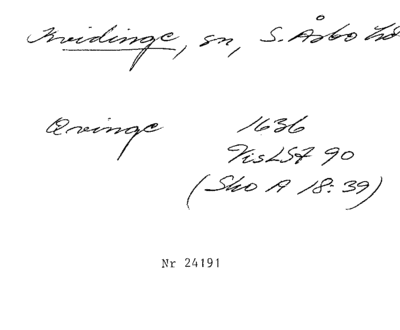 Kvidinge, sn, S. Åsbo hd
Qvinge 1636
VisLSF 90
(Sko A 18:39)
Nr 24191